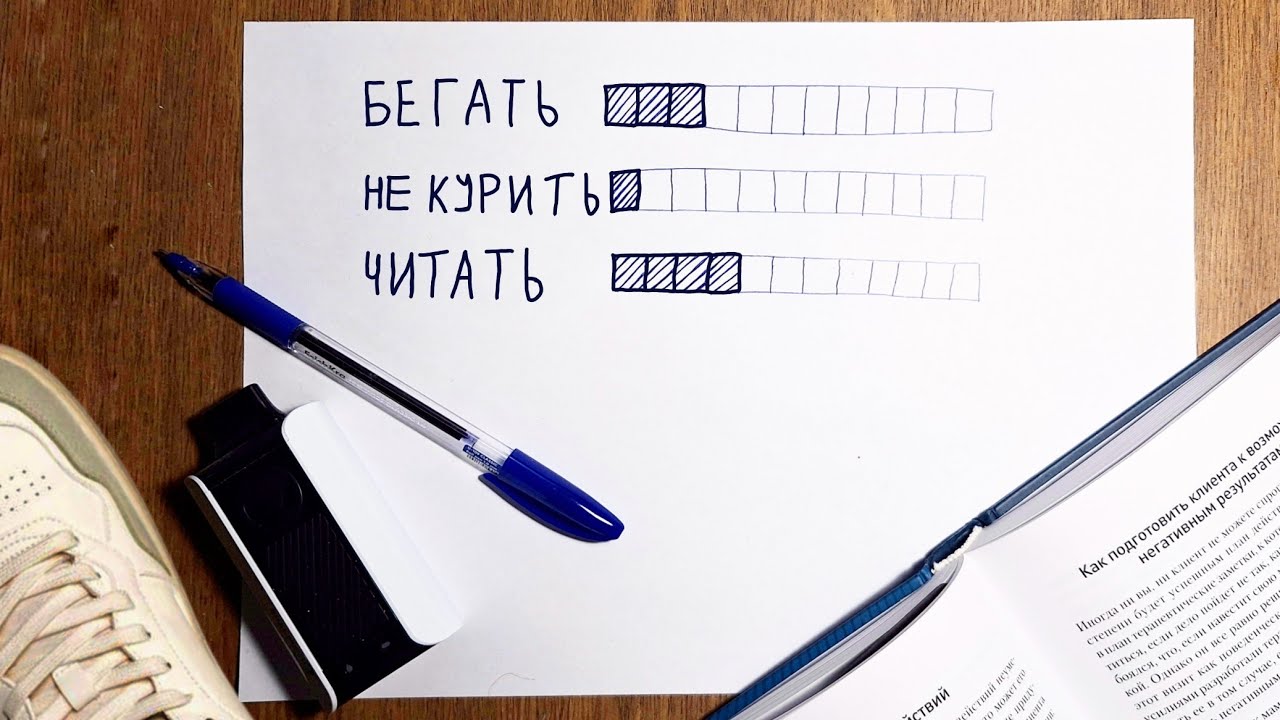 БЕГАТЬ
НЕ КУРИТЬ
ЧИТАТЬ
Как подготовить клиента к
негативным результатам
Иногда ни вы, ни клиент не можете
степени будет успешным план
в план терапевтические заметки, к
титься, если дело пойдет не так,
боялся, что, если навестит
кой. Однако он все равно
этот визит как
разработали
ее в том случае,